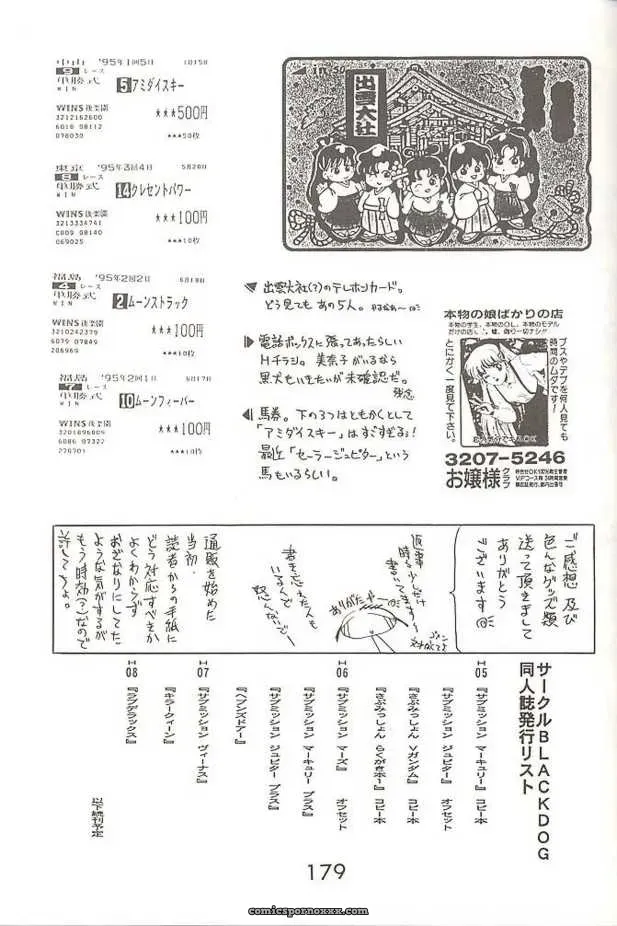 中山 '95年1回5日 1月15日
9レース
単勝式 WIN 5 アミダイスキー
WINS後楽園 ★★★500円
3212162600
6018 08112
078030 ★★★50枚
東京 '95年3回4日 5月28日
8レース
単勝式 WIN 14 クレセントパワー
WINS後楽園 ★★★100円
3213334741
C009 08140
069025 ★★★10枚
福島 '95年2回2日 6月18日
4レース
単勝式 WIN 2 ムーンストラック
WINS後楽園 ★★★100円
3210242379
6079 07849
206969 ★★★10枚
福島 '95年2回1日 6月17日
7レース
単勝式 WIN 10 ムーンフィーバー
WINS後楽園 ★★★100円
3201896809
6086 07322
278701 ★★★10枚
出雲大社
出雲大社(?)のテレホンカード。
どう見てもあの5人。
電話ボックスに張ってあったらしい
Hチラシ。美奈子がいるなら
黒犬もいきたいが未確認だ。
残念
馬券。下の3つはともかくとして
「アミダイスキー」はすごすぎる!
最近「セーラージュピター」という
馬もいるらしい。
本物の娘ばかりの店
本物の学生、本物のOL、本物のモデル
だけの店。
ブスやデブを何人見ても
時間のムダです!
とにかく一度見て下さい。
3207-5246
お嬢様クラブ
ご感想 及び
色んなグッズ類
送って頂きまして
ありがとう
ございます
返事
時々少しだけ
書いてます
ありがたや
君を忘れた人も
いるんで
怒んないで
通販を始めた
当初、
読者からの手紙に
どう対応すべきか
よくわからず
おざなりにしてた
ような気がするが
もう時効(?)なので
許してちょ。
サークルBLACKDOG
同人誌発行リスト
H05
『サブミッション マーキュリー』 コピー本
『サブミッション ジュピター』 オフセット
『さぶみっしょん Vガンダム』 コピー本
『さぶみっしょん らくがきホー』 コピー本
H06
『サブミッション マーズ』 オフセット
『サブミッション マーキュリー プラス』
『サブミッション ジュピター プラス』
『ヘブンズドアー』
H07
『サブミッション ヴィーナス』
『キラークィーン』
H08
『ラブデラックス』
以下続刊予定
179
www.comicspornoxxx.com